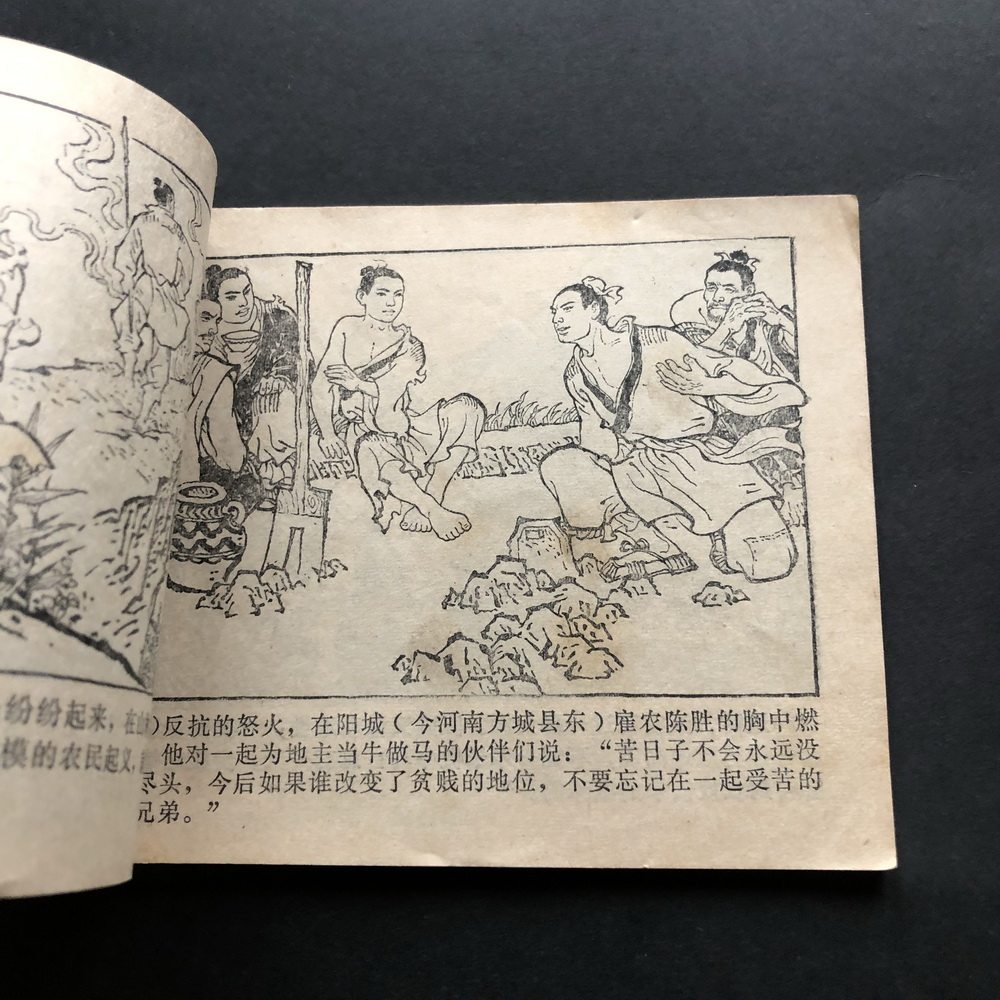 纷纷起来，在
模的农民起义，
）反抗的怒火，在阳城（今河南方城县东）雇农陈胜的胸中燃
他对一起为地主当牛做马的伙伴们说：“苦日子不会永远没
尽头，今后如果谁改变了贫贱的地位，不要忘记在一起受苦的
兄弟。”